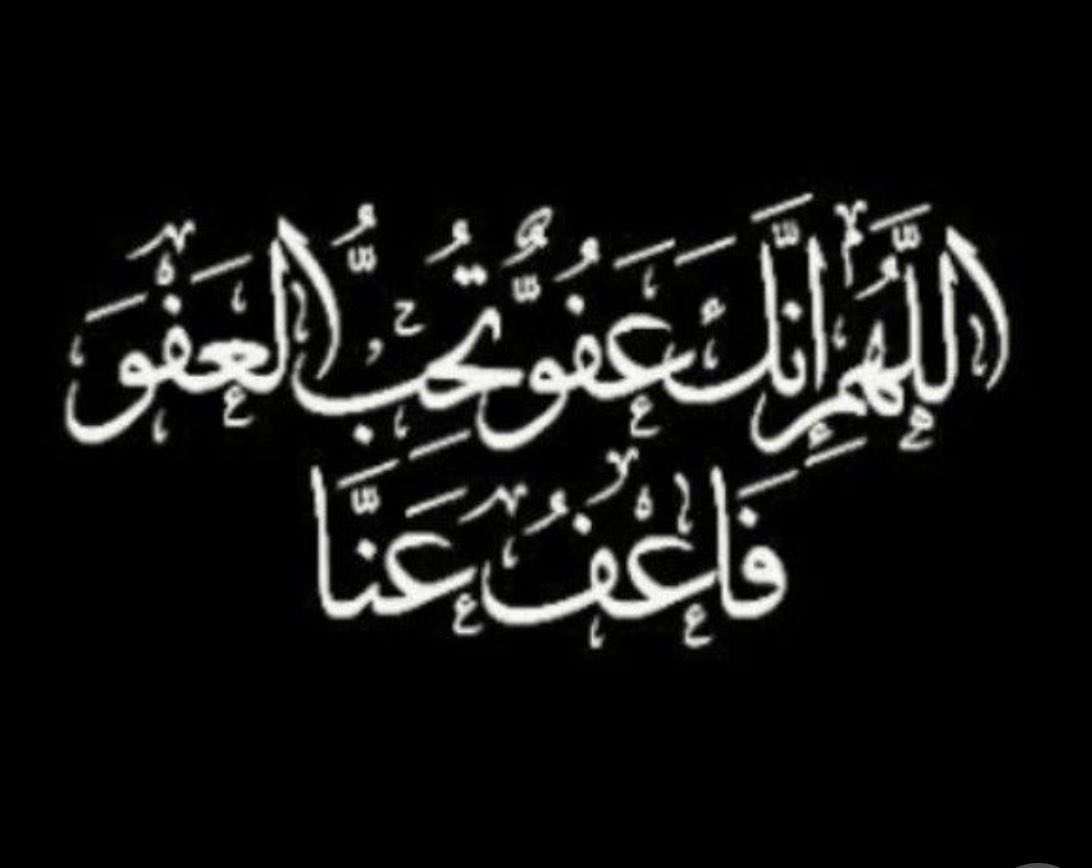 اللَّهُمَّ إِنَّكَ عَفُوٌّ تُحِبُّ الْعَفْوَ
فَاعْفُ عَنَّا